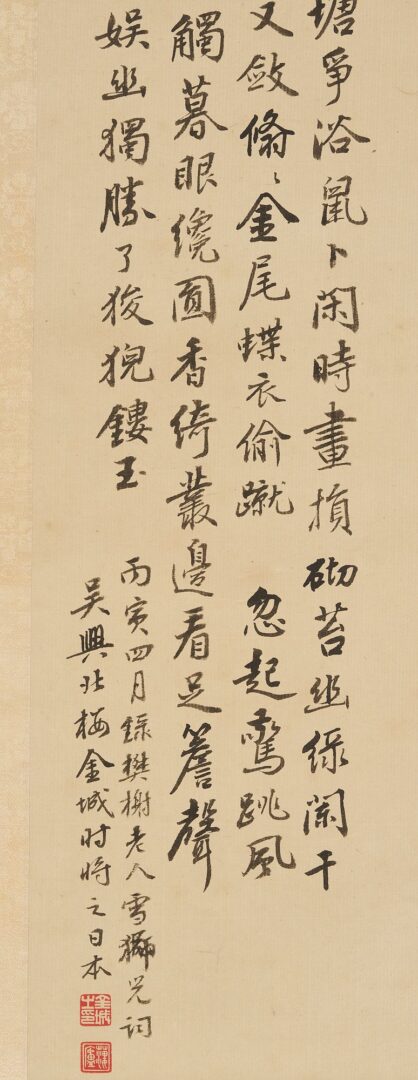 塘爭浴鼠卜閑時畫損砌苔幽綠闌干
又斂翛〻金尾蝶衣偷蹴忽起驚跳風
觸暮眼纔圓香綺叢邊看足簷聲
娛幽獨勝了狻猊鏤玉
丙寅四月錄樊榭老人雪獅兒詞
吳興北楼金城时将之日本